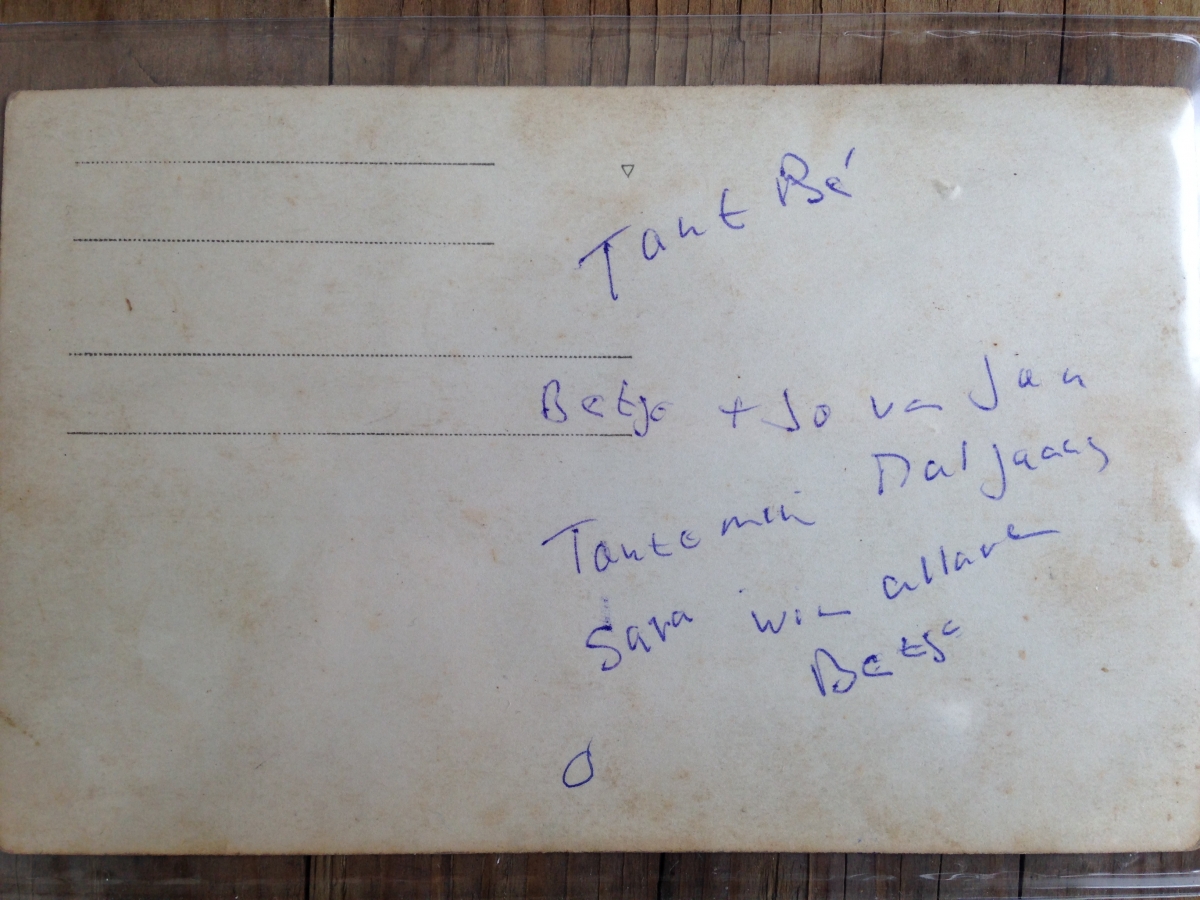 Tant Bé
Betje + Jo van Jan
Tante mein Daljaaas
Sara win allaren
Betje
O